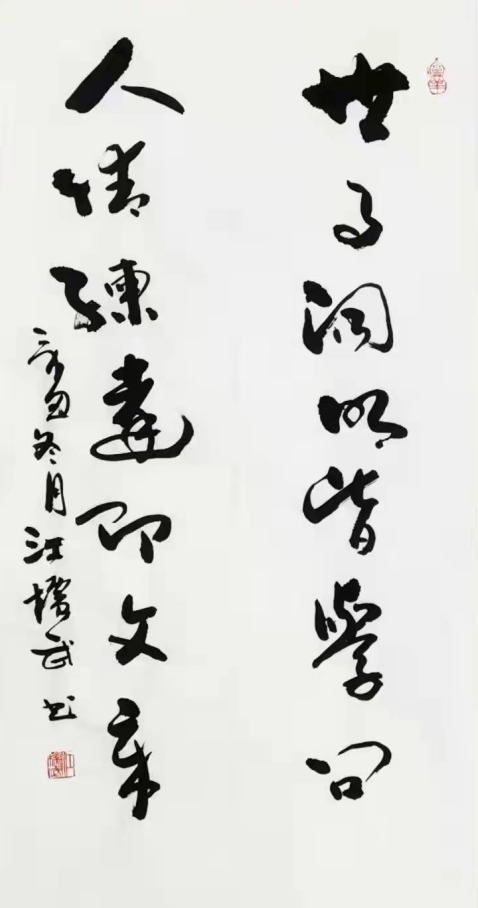 世事洞明皆学问
人情练达即文章
辛丑冬月汪增武书